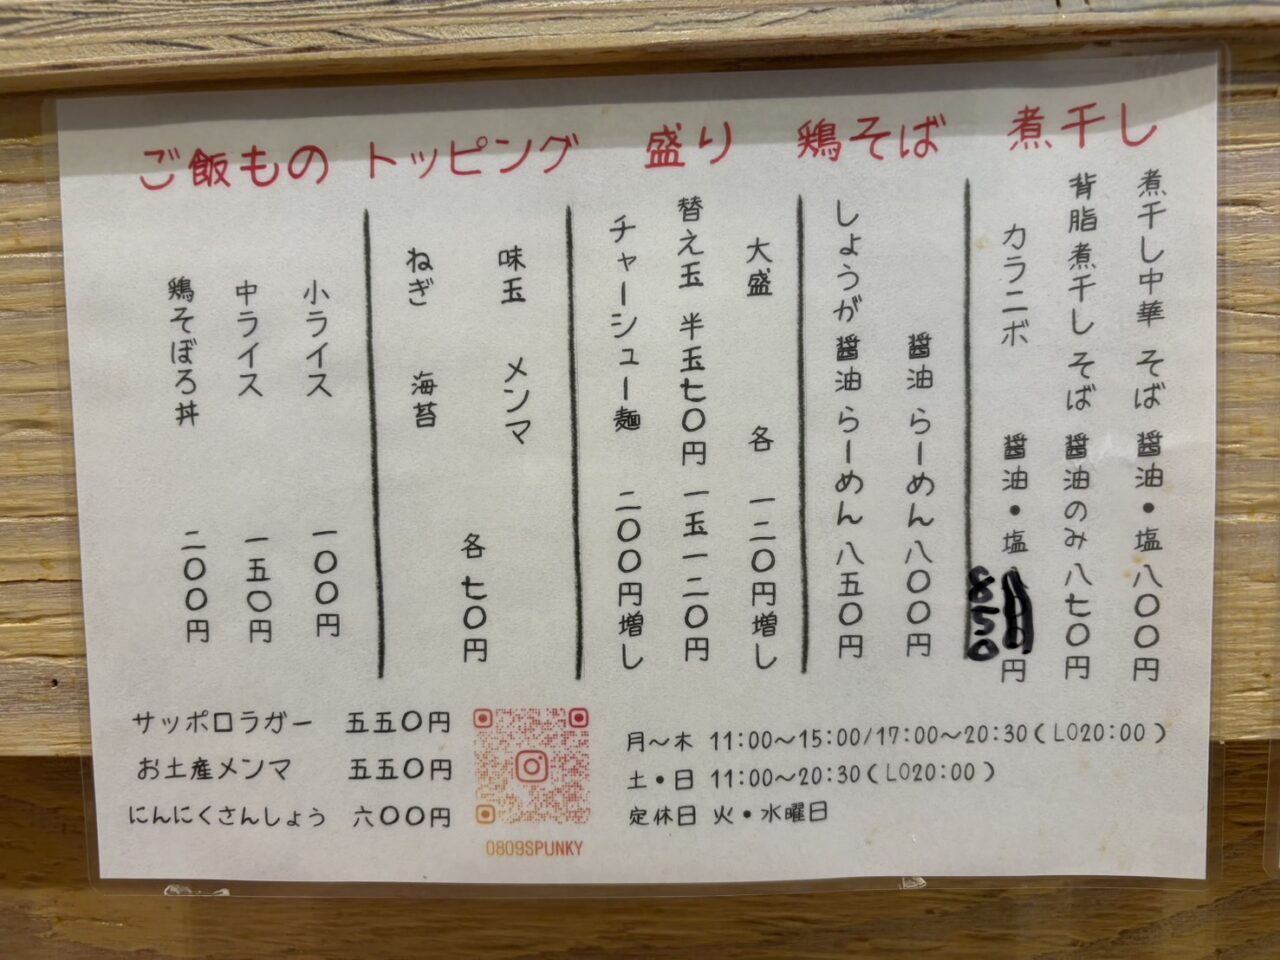 煮干し
煮干し中華そば 醤油・塩 八〇〇円
背脂煮干しそば 醤油のみ 八七〇円
カラニボ 醤油・塩 850円
鶏そば
醤油らーめん 八〇〇円
しょうが醤油らーめん 八五〇円
盛り
大盛 各 一二〇円増し
替え玉 半玉七〇円 一玉一二〇円
チャーシュー麺 二〇〇円増し
トッピング
味玉 メンマ
ねぎ 海苔
各七〇円
ご飯もの
小ライス 一〇〇円
中ライス 一五〇円
鶏そぼろ丼 二〇〇円
サッポロラガー 五五〇円
お土産メンマ 五五〇円
にんにくさんしょう 六〇〇円
0809SPUNKY
月〜木 11:00〜15:00/17:00〜20:30(LO20:00)
土・日 11:00〜20:30(LO20:00)
定休日 火・水曜日